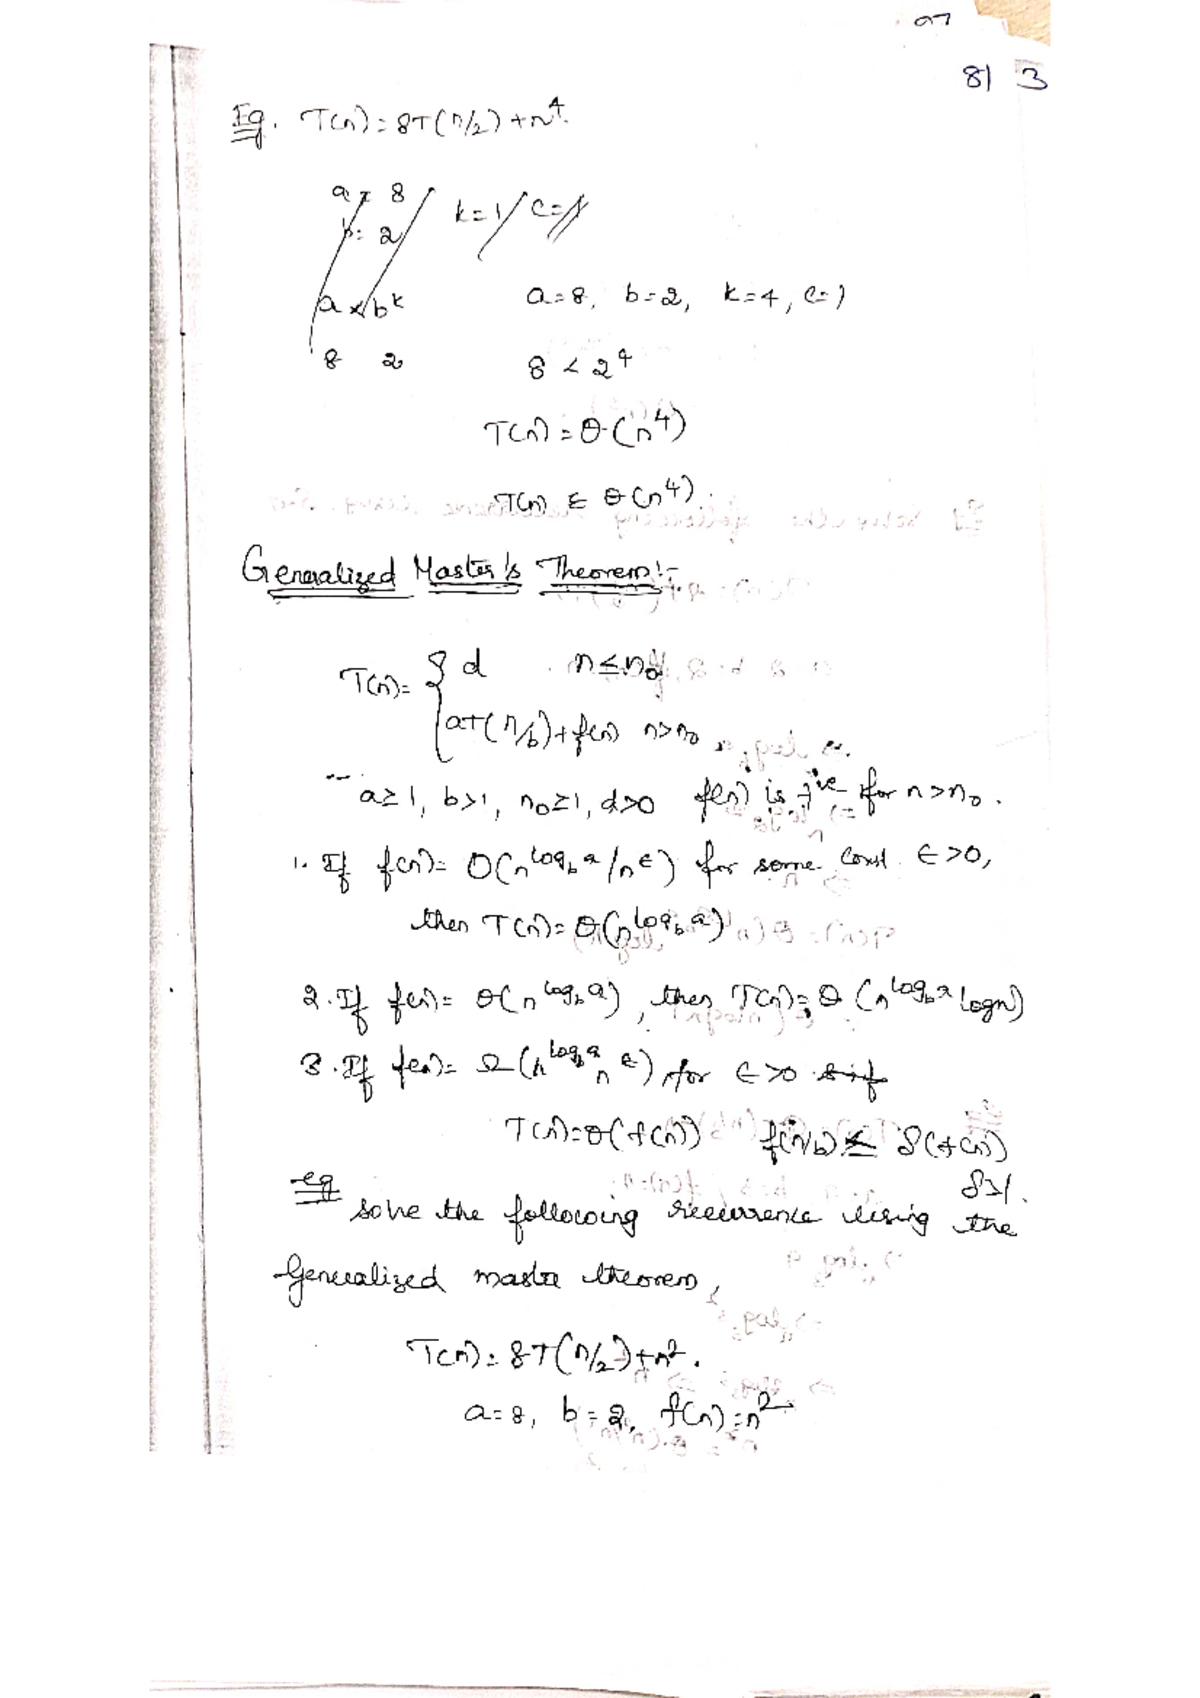 8) 3
Eg. T(n) = 8T(n/2) + n^4.
a = 8 k = 1 c = 1
b = 2
a × b^k a = 8, b = 2, k = 4, c = 1
8 2 8 < 2^4
T(n) = θ(n^4)
T(n) ∈ θ(n^4).
Generalized Master's Theorem:-
T(n) = { d n ≤ n0
aT(n/b) + f(n) n > n0
a ≥ 1, b > 1, n0 ≥ 1, d > 0 f(n) is +ve for n > n0.
1. If f(n) = O(n^log_b a / n^ε) for some const. ε > 0,
then T(n) = θ(n^log_b a)
2. If f(n) = θ(n^log_b a), then T(n) = θ(n^log_b a log n)
3. If f(n) = Ω(n^log_b a n^ε) for ε > 0 & if
T(n) = θ(f(n)) f(n/b) ≤ δ(f(n))
δ > 1.
eg
solve the following recurrence using the
Generalized master theorem,
T(n) = 8T(n/2) + n^2.
a = 8, b = 2, f(n) = n^2